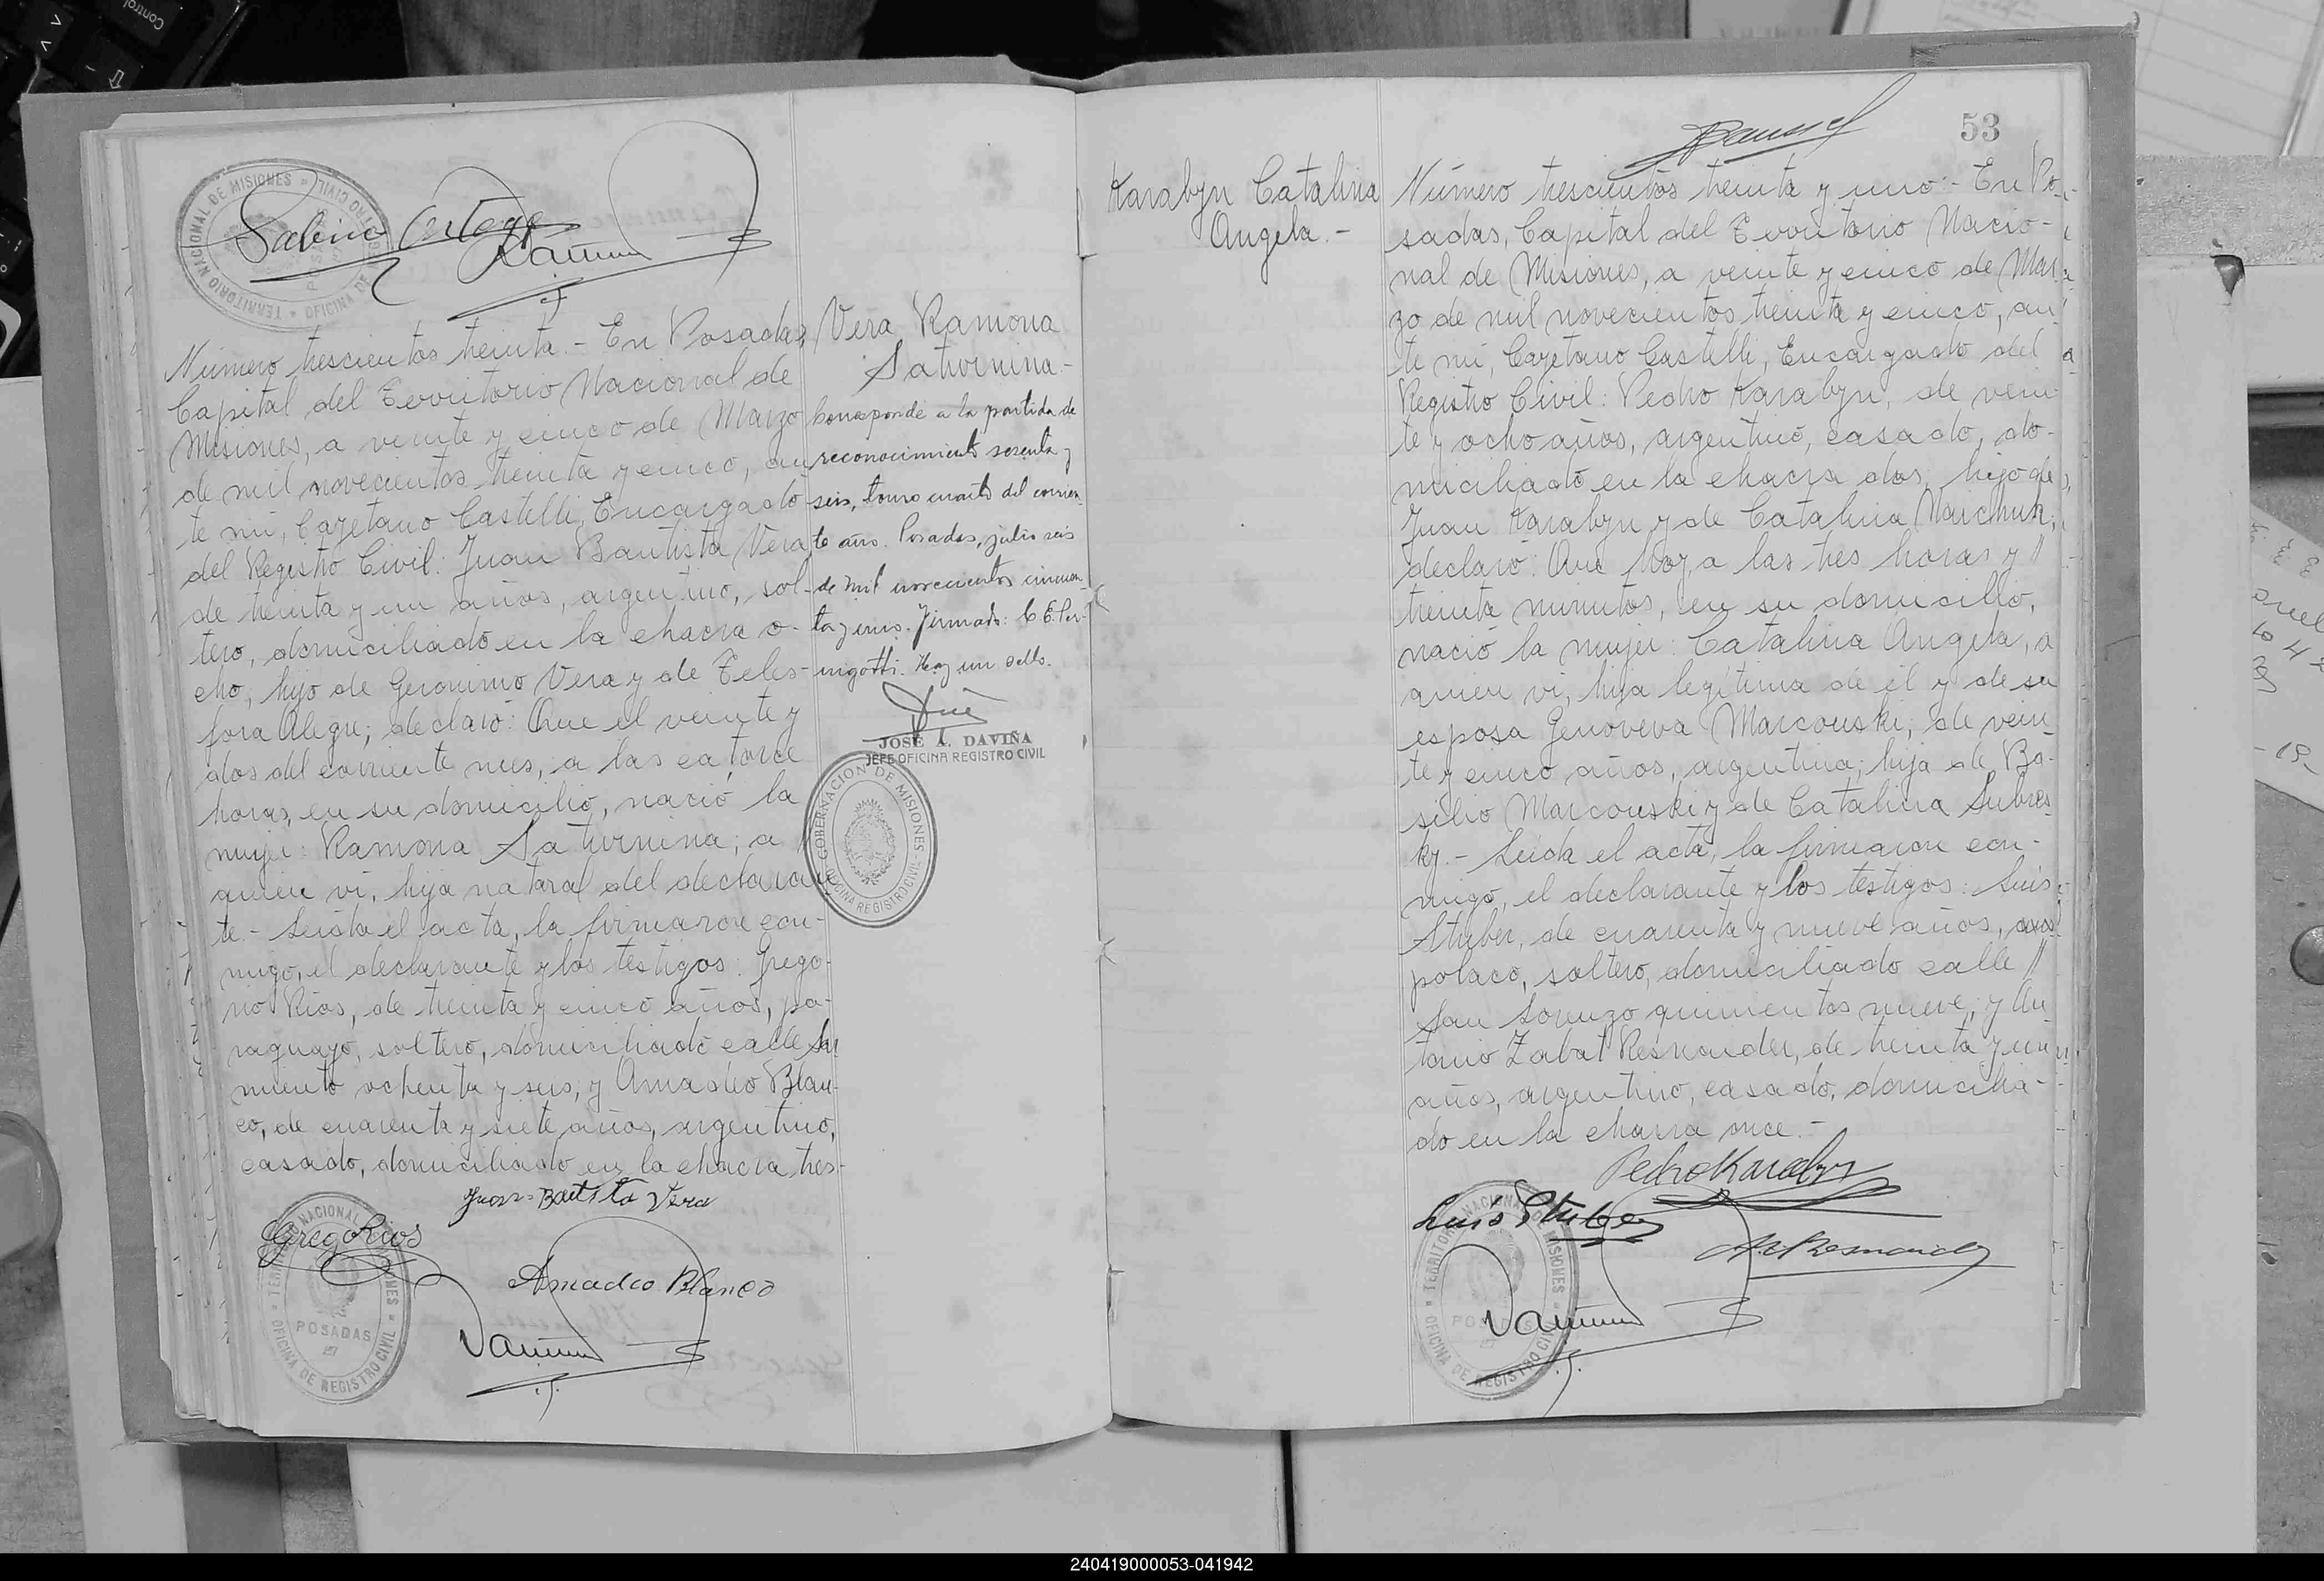 TERRITORIO NACIONAL DE MISIONES
OFICINA DE REGISTRO CIVIL
Sabino
Número trescientos treinta.- En Posadas,
Capital del Territorio Nacional de
Misiones, a veinte y cinco de Marzo
de mil novecientos treinta y cinco, an
te mi, Cayetano Castelli, Encargado
del Registro Civil: Juan Bautista Vera,
de treinta y un años, argentino, sol-
tero, domiciliado en la chacra o-
cho, hijo de Geronimo Vera y de Teles-
fora Alegre; declaró: Que el veinte y
dos del corriente mes, a las catorce
horas, en su domicilio, nació la
mujer: Ramona Saturnina; a
quien vi, hija natural del declaran
te.- Leída el acta, la firmaron con-
migo, el declarante y los testigos: Grego-
rio Rios, de treinta y cinco años, pa-
raguayo, soltero, domiciliado calle Sar
miento ochenta y seis; y Amadeo Blan-
co, de cuarenta y siete años, argentino,
casado, domiciliado en la chacra tres-
Juan Bautista Vera
Greg Rios
Amadeo Blanco
TERRITORIO NACIONAL DE MISIONES
POSADAS
OFICINA DE REGISTRO CIVIL
Vera Ramona
Saturnina.-
Corresponde a la partida de
reconocimiento sesenta y
seis, tomo cuarto del corrien
te año. Posadas, julio seis
de mil novecientos cincuen
ta y uno. Firmado: C. E. Per-
ugotti. Hay un sello.
JOSÉ A. DAVIÑA
JEFE OFICINA REGISTRO CIVIL
GOBERNACION DE MISIONES
OFICINA REGISTRO CIVIL
53
Karabyn Catalina
Angela.-
Número trescientos treinta y uno.- En Po-
sadas, Capital del Territorio Nacio-
nal de Misiones, a veinte y cinco de Mar
zo de mil novecientos treinta y cinco, an
te mi, Cayetano Castelli, Encargado del
Registro Civil: Pedro Karabyn, de vein
te y ocho años, argentino, casado, do-
miciliado en la chacra dos, hijo de
Juan Karabyn y de Catalina Marchuk;
declaró: Que hoy, a las tres horas y //
treinta minutos, en su domicilio,
nació la mujer: Catalina Angela, a
quien vi, hija legítima de él y de su
esposa Genoveva Marcouski, de vein
te y cinco años, argentina; hija de Ba-
silio Marcouski y de Catalina Subres
ky.- Leída el acta, la firmaron con-
migo, el declarante y los testigos: Luis
Stuber, de cuarenta y nueve años,
polaco, soltero, domiciliado calle //
San Lorenzo quinientos nueve; y An
tonio Zabat Resnander, de treinta y un
años, argentino, casado, domicilia-
do en la chacra once.-
Pedro Karabyn
Luis Stuber
TERRITORIO NACIONAL DE MISIONES
POSADAS
OFICINA DE REGISTRO CIVIL
240419000053-041942